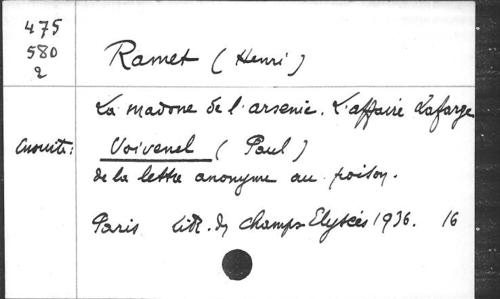 475
580
2
Ramet (Henri)
La madone de l'arsenic. L'affaire Lafarge
Ensuite: Voivenel (Paul)
de la lettre anonyme au poison.
Paris Lib. des Champs Elysées 1936. 16